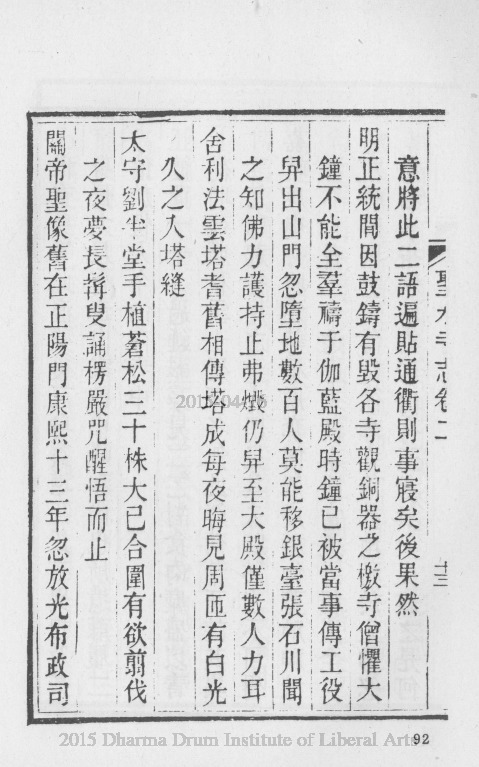 聖水寺志卷二
十三
意將此二語遍貼通衢則事寢矣後果然
明正統間因鼓鑄有毀各寺觀銅器之檄寺僧懼大
鐘不能全羣禱于伽藍殿時鐘已被當事傳工役
舁出山門忽墮地數百人莫能移銀臺張石川聞
之知佛力護持止弗燬仍舁至大殿僅數人力耳
舍利法雲塔耆舊相傳塔成每夜晦見周匝有白光
久之入塔縫
太守劉半堂手植蒼松三十株大已合圍有欲翦伐
之夜夢長髯叟誦楞嚴咒醒悟而止
關帝聖像舊在正陽門康熙十三年忽放光布政司
92
2015 Dharma Drum Institute of Liberal Arts